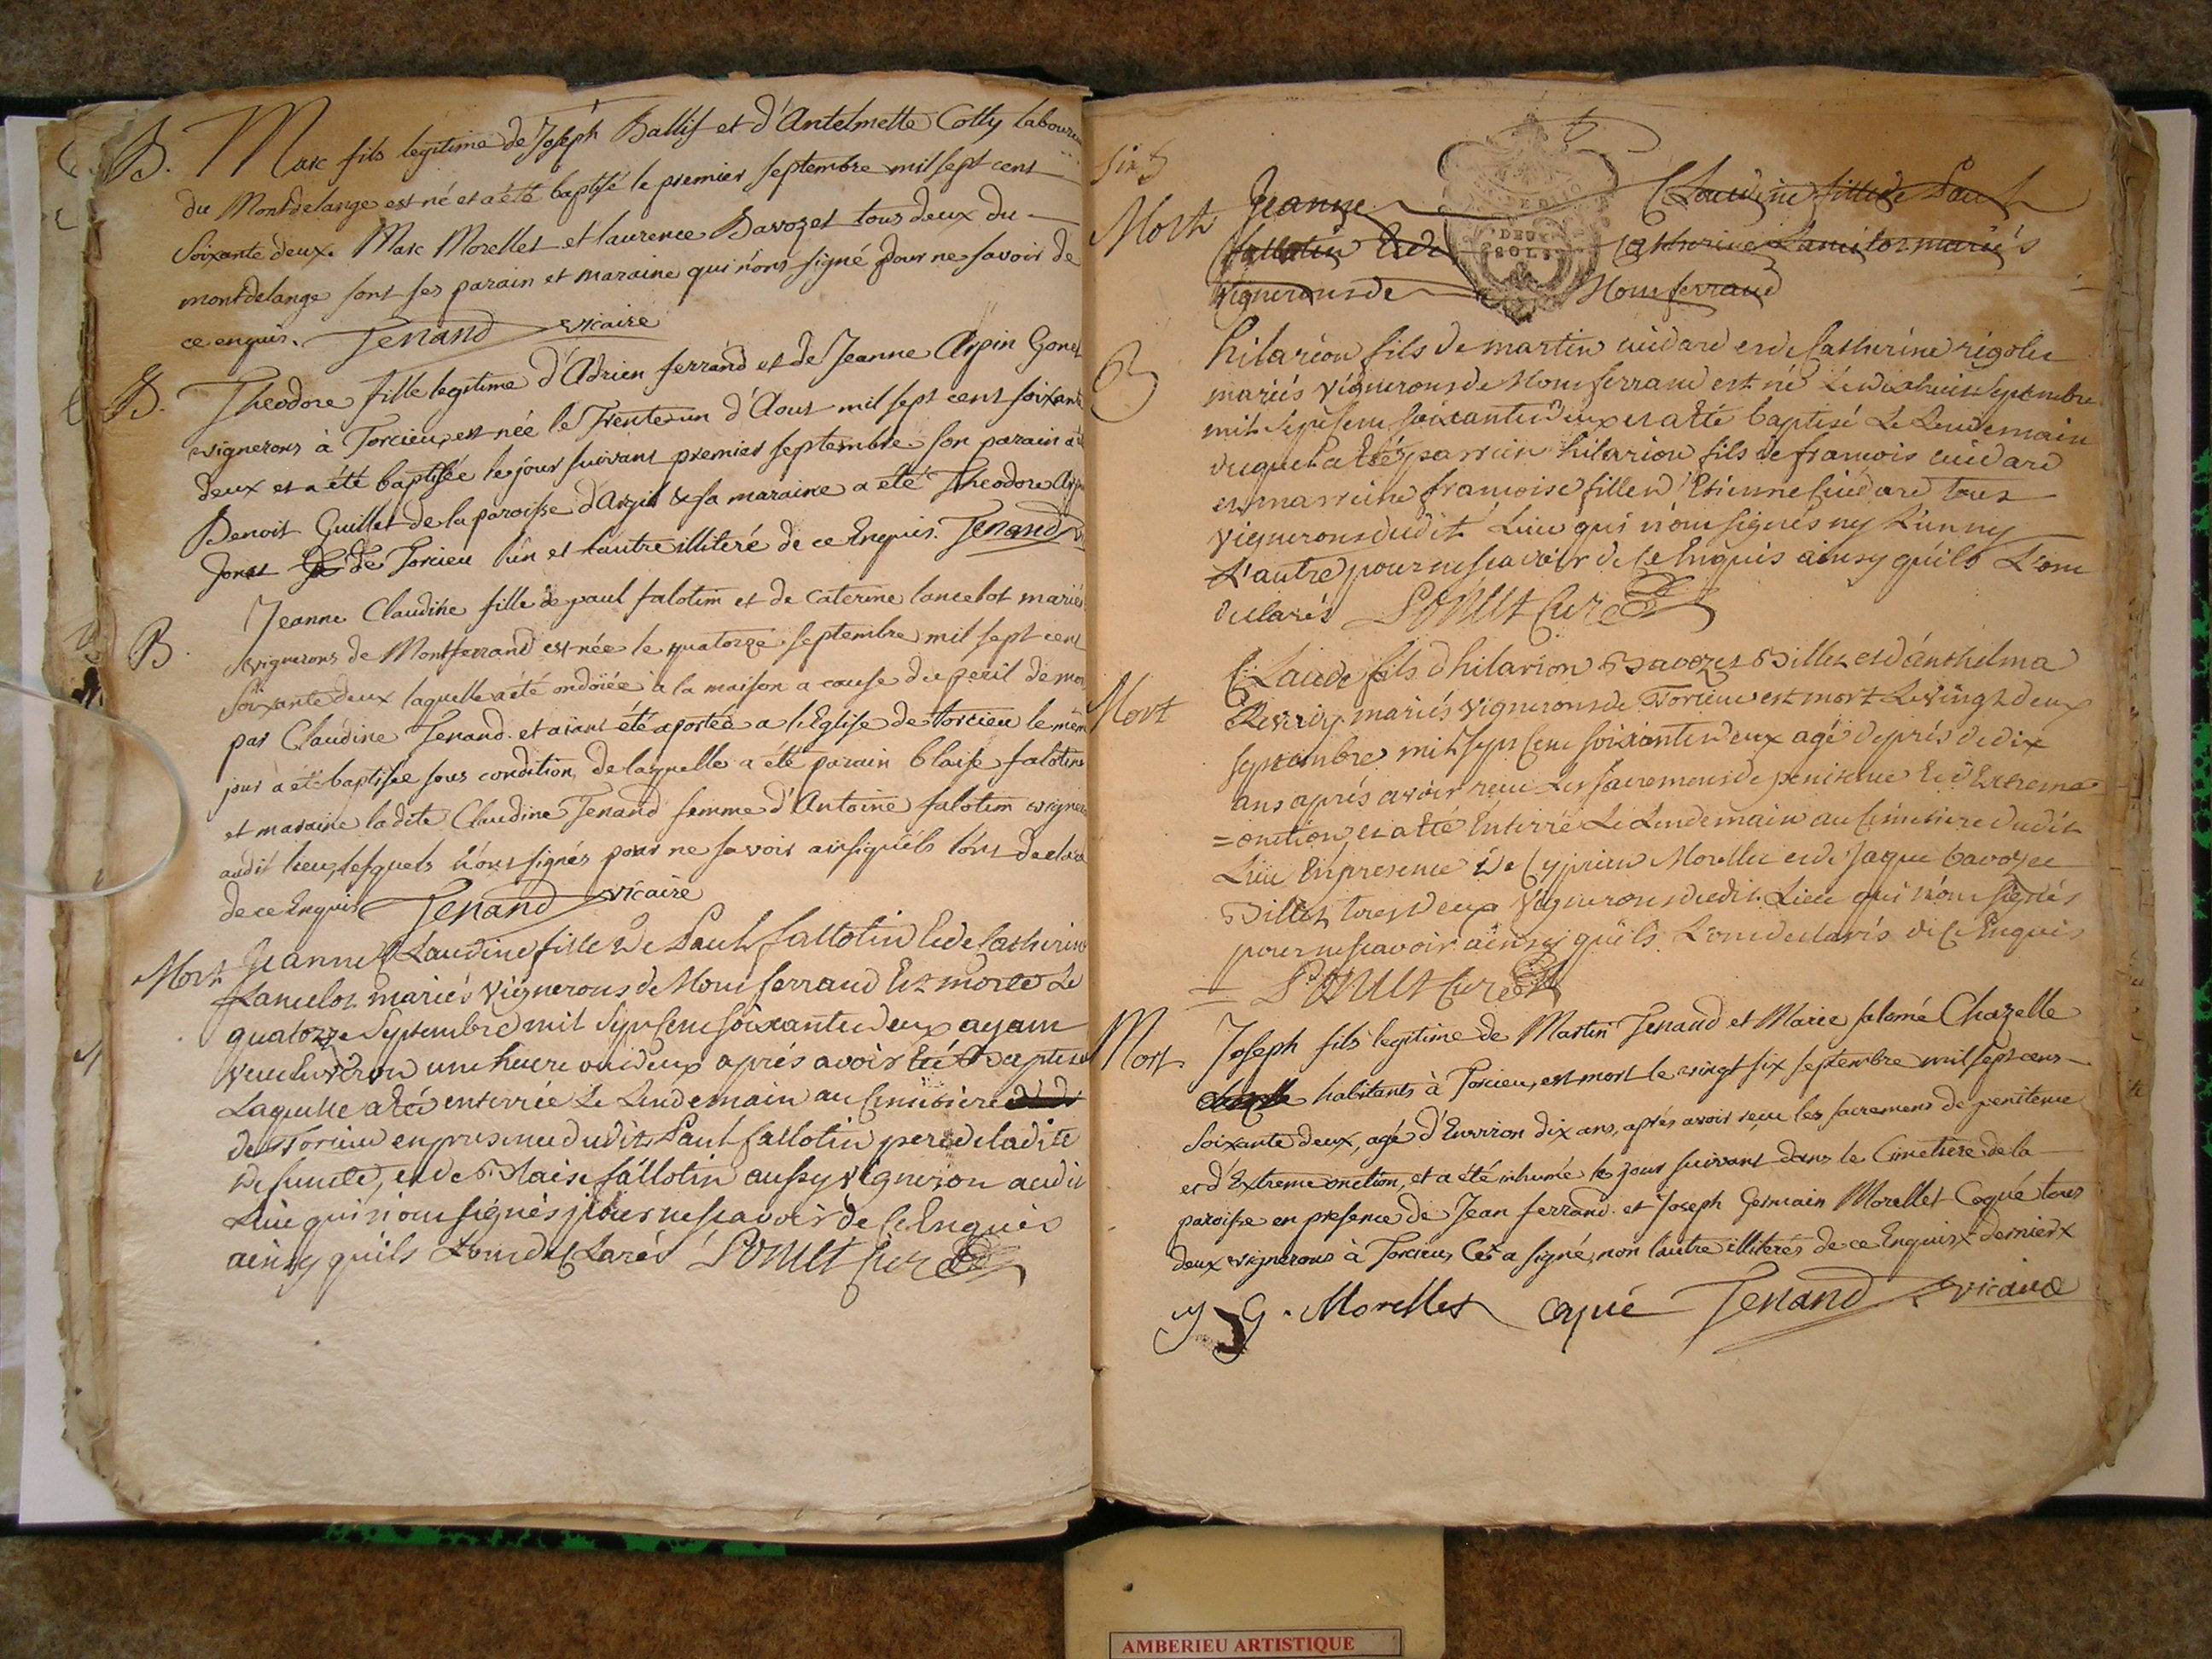 B. Marc fils legitime de Joseph Ballif et d'Antelmette Cotty laboureurs
du Montdelange est né et a été baptisé le premier septembre mil sept cent
soixante deux. Marc Morellet et laurence Bavozet tous deux du
montdelange sont ses parain et maraine qui n'ont signé pour ne savoir de
ce enquis. Tenand vicaire
B. Theodore fille legitime d'Adrien ferrand et de Jeanne Arpin Gonet
vignerons à Torcieu, est née le Trente un d'Aout mil sept cent soixante
deux et a été baptisée le jour suivant premier septembre son parain a été
Benoit Guillet de la paroisse d'Argil & sa maraine a été Theodore Arpin
Gonet de Torcieu l'un et l'autre illiteré de ce Enquis. Tenand
B Jeanne Claudine fille de paul falotim et de Caterine lancelot mariés
vignerons de Montferrand est née le quatorze septembre mil sept cent
soixante deux laquelle a été ondoiée à la maison a cause du peril de mort
par Claudine Tenand. et aiant été aportée a l'Eglise de torcieu le même
jour a été baptisée sous condition, de laquelle a été parain blaise falotim
et maraine ladite Claudine Tenand femme d'Antoine falotim vigneron
audit lieu, lesquels n'ont signés pour ne savoir ainsi qu'els l'ont declaré
de ce Enquis Tenand vicaire
Mort Jeanne Claudine fille de Paul fallotin Et de Catherine
Lancelot mariés vignerons de Montferrand Est morte Le
quatorze Septembre mil sept cent soixante deux ayant
vecu Environ une heure ou deux aprés avoir Eté Baptisée
Laquelle a eté enterrée Le Lendemain au Cimitiere
de Torcieu en presence dudit Paul fallotin pere de ladite
defuncte, et de Blaise fallotin aussy vigneron audit
Lieu qui n'ont signés pour ne scavoir de ce Enquis
ainsy qu'ils L'ont declarés Ponult Curé
DEUX
SOLS
Mort Jeanne Claudine fille de Paul
fallotin Et de Catherine Lancelot mariés
vignerons de Montferrand
B hilarion fils de martin cuidard et de Catherine rigolet
mariés vignerons de Montferrand est né Le dixhuit Septembre
mil sept cent soixante deux et a été baptisé Le Lendemain
duquel a été parrein hilarion fils de francois cuidard
et marreine francoise fille d'Etienne Cuidard tous
vignerons dudit Lieu qui n'ont signés ny L'un ny
L'autre pour ne scavoir de Ce Enquis ainsy qu'ils L'ont
declarés Ponult Curé
Mort Claude fils d'hilarion Bavozet Billet et d'anthelma
mariés vignerons de Torcieu est mort Le vingt deux
septembre mil sept cent soixante deux agé de prés de dix
ans aprés avoir reçu Les sacrements de penitence Et d'Extreme
=onction, et a été Enterré Le Lendemain au Cimetiere dudit
Lieu En presence de Cyprien Morellet et de Jaque bavozet
Billet tous deux vignerons dudit Lieu qui n'ont signés
pour ne scavoir ainsy qu'ils L'ont declarés de Ce Enquis
Ponult Curé
Mort Joseph fils legitime de Martin Tenand et Marie salomé Chazelle
habitants à Torcieu, est mort le vingt six septembre mil sept cent
soixante deux, agé d'Environ dix ans, aprés avoir reçu les sacremens de penitence
et d'Extreme onction, et a été inhumé le jour suivant dans le Cimetiere de la
paroisse en presence de Jean ferrand. et Joseph Germain Morellet Coqué tous
deux vignerons à Torcieu, Cet a signé, non l'autre illiterés de ce Enquis x dernier x
J G. Morellet coqué Tenand vicaire
AMBERIEU ARTISTIQUE